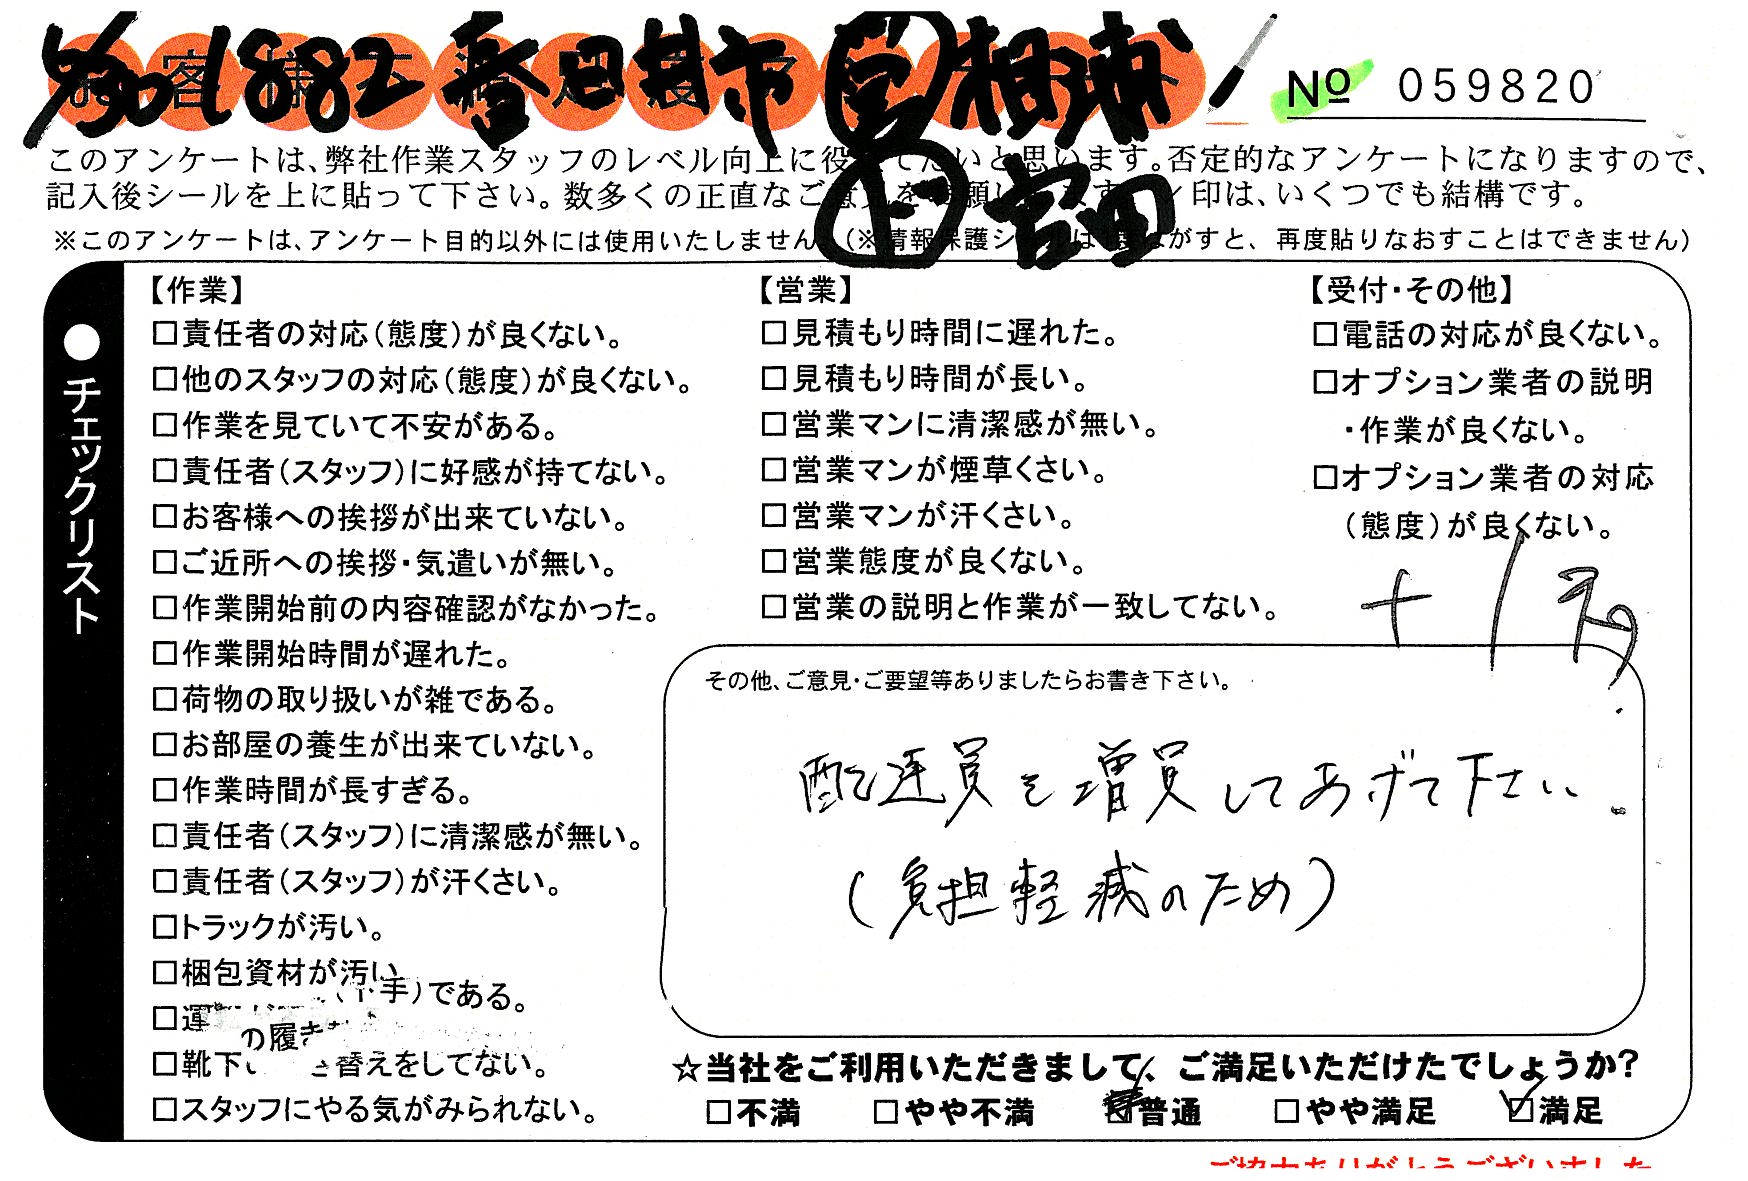 4/30 1882 春日井市 営 相浦
№ 059820
このアンケートは、弊社作業スタッフのレベル向上に役 てたいと思います。否定的なアンケートになりますので、
記入後シールを上に貼って下さい。数多くの正直なご意見を 願 ます ン印は、いくつでも結構です。
上 宮田
※このアンケートは、アンケート目的以外には使用いたしません (※情報保護シールは がすと、再度貼りなおすことはできません)
●チェックリスト
【作業】
□責任者の対応(態度)が良くない。
□他のスタッフの対応(態度)が良くない。
□作業を見ていて不安がある。
□責任者(スタッフ)に好感が持てない。
□お客様への挨拶が出来ていない。
□ご近所への挨拶・気遣いが無い。
□作業開始前の内容確認がなかった。
□作業開始時間が遅れた。
□荷物の取り扱いが雑である。
□お部屋の養生が出来ていない。
□作業時間が長すぎる。
□責任者(スタッフ)に清潔感が無い。
□責任者(スタッフ)が汗くさい。
□トラックが汚い。
□梱包資材が汚い
□運 手)である。
の履き
□靴下 き替えをしてない。
□スタッフにやる気がみられない。
【営業】
□見積もり時間に遅れた。
□見積もり時間が長い。
□営業マンに清潔感が無い。
□営業マンが煙草くさい。
□営業マンが汗くさい。
□営業態度が良くない。
□営業の説明と作業が一致してない。
【受付・その他】
□電話の対応が良くない。
□オプション業者の説明
・作業が良くない。
□オプション業者の対応
(態度)が良くない。
その他、ご意見・ご要望等ありましたらお書き下さい。
配達員を増員してあげて下さい
(負担軽減のため)
☆当社をご利用いただきまして、ご満足いただけたでしょうか?
□不満 □やや不満 □普通 □やや満足 ☑満足
ご協力ありがとうございました